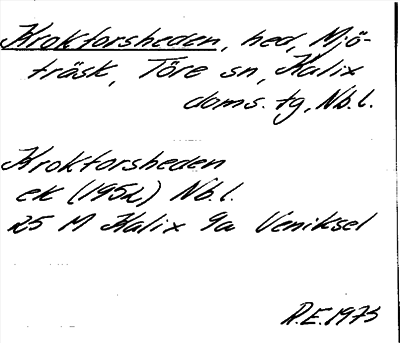 Kroktorsheden, hed, Mjö-
träsk, Töre sn, Kalix
doms. tg, Nb.l.
Kroktorsheden
ek (1952) Nb.l.
25 M Kalix 9a Veniksel
R.E. 1973